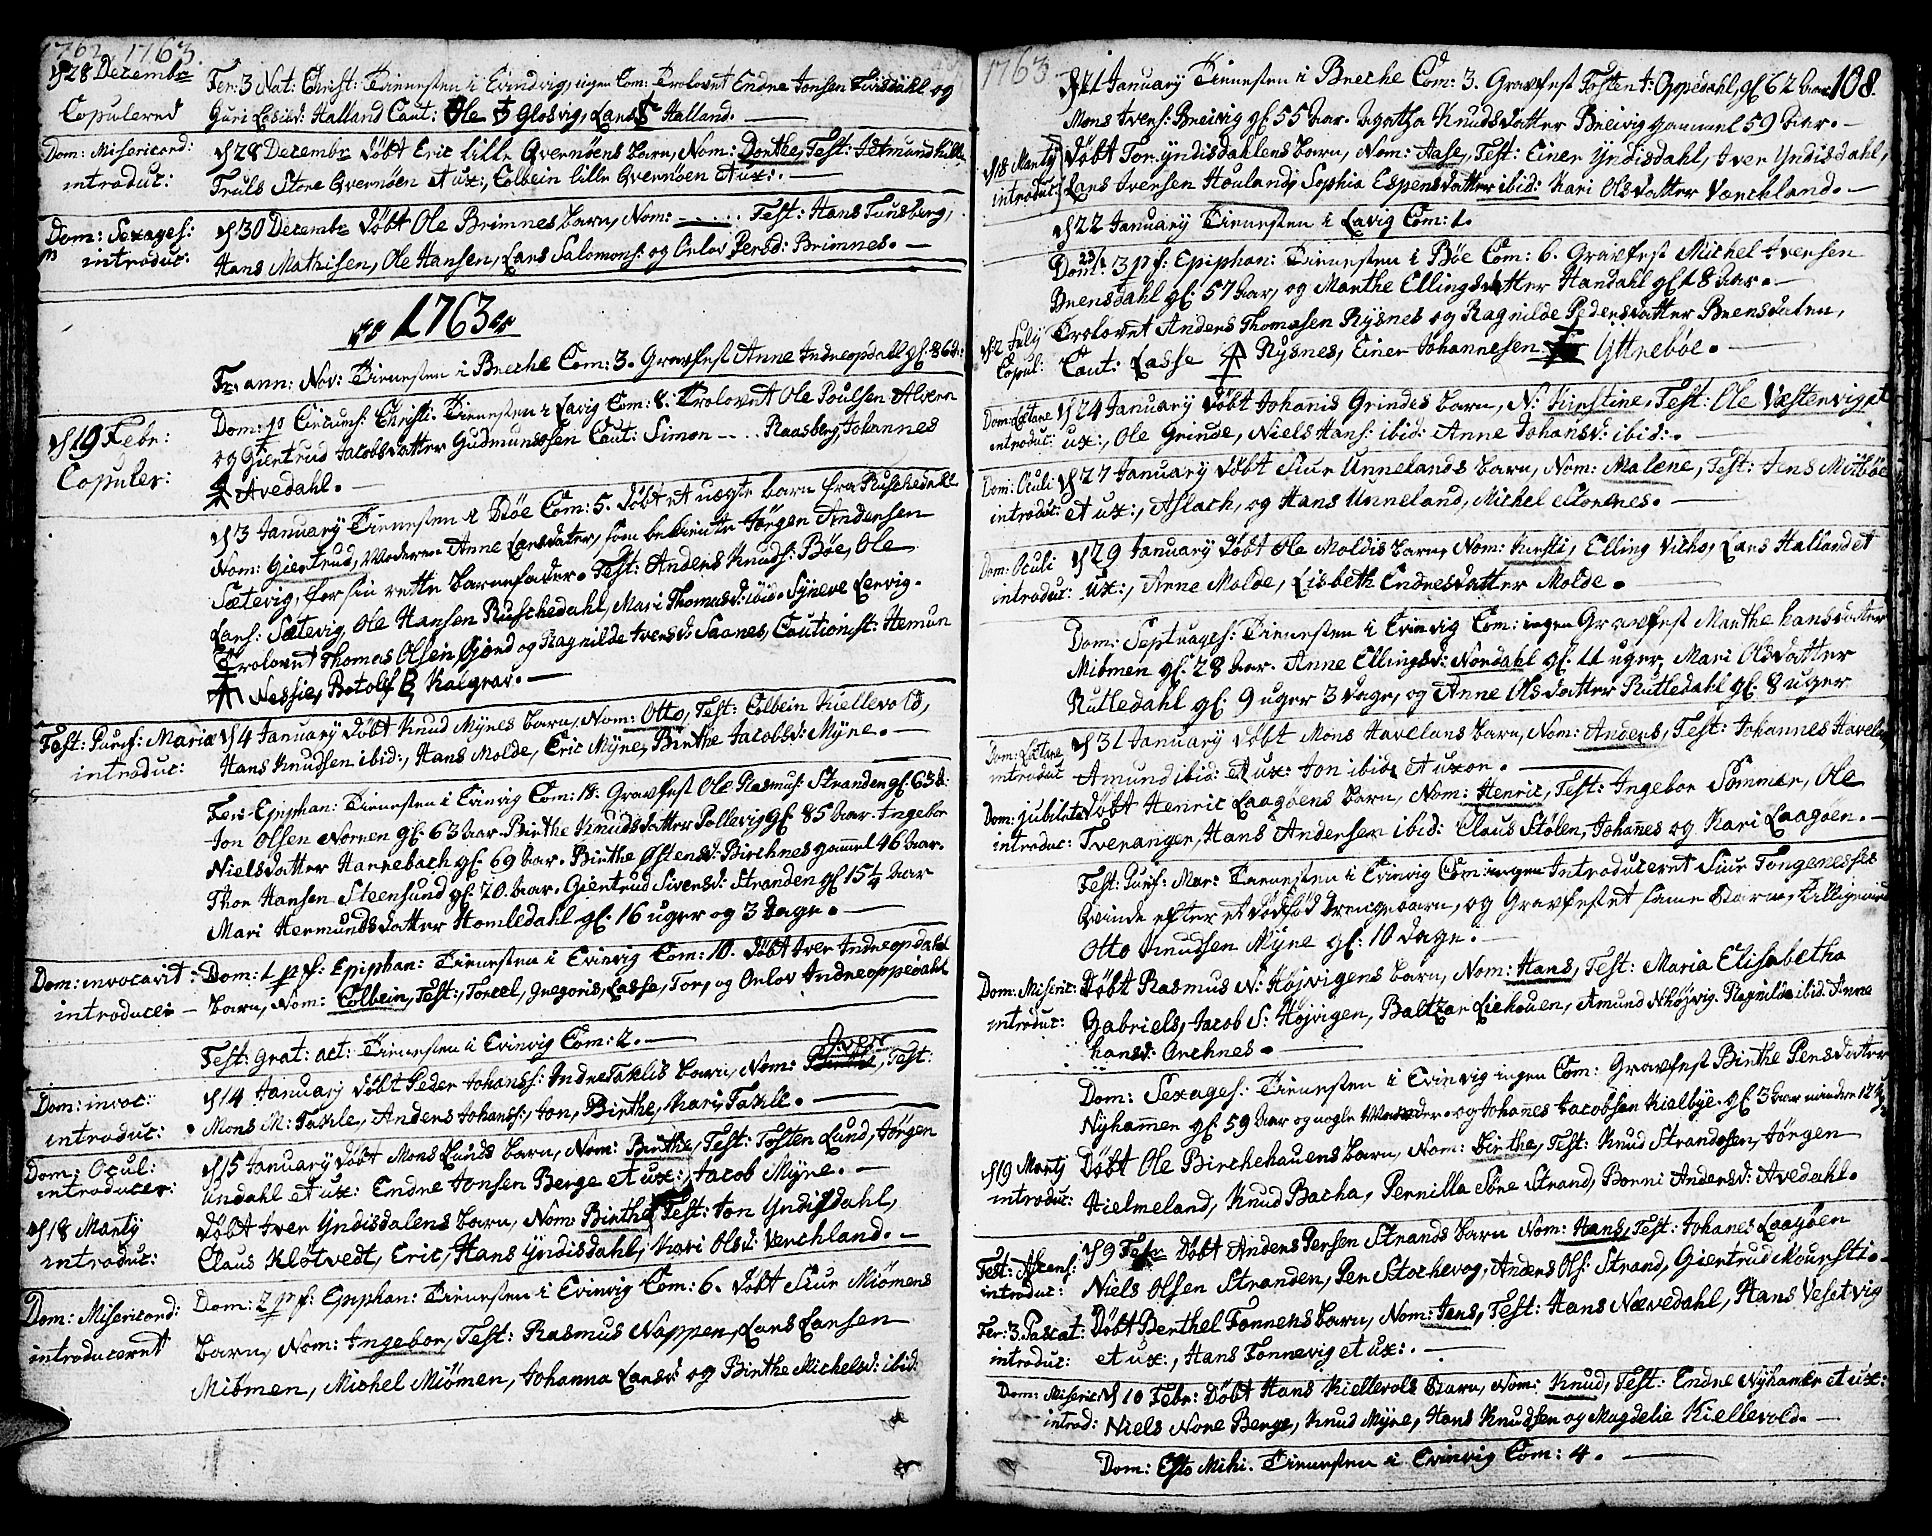 1762. 1763.
28 Decembr Fer: 3 Nat: Christ: Tienesten i Evindvig, ingen Com: Trolovet Endre Jonsen Evisdahl og
Copulered Guri Halland Caut: Ole Glosvig, Lars Halland.
Dom: Misericord: introduc: 28 Decembr døbt Eric lille Qvernøens barn, Nom: Dorthe, Test: Hille
Truls Store Qvernøen et ux:, Colbein lille Qvernøen et ux:.
Dom: Sexages: introduc: 30 Decembr døbt Ole Brimnes barn, Nom: ...... Test: Hans Tunsberg,
Hans Mathisen, Ole Hansen, Lars Salomons: og Orlov Persd: Brimnes.
1763
Fr: ann: Nov: Tienesten i Breche Com: 3. Gravfest Anne Indreopdahl gl: 86
19 Febr: Copuler: Dom: Circumf: Christi: Tienesten i Lavig Com: 8. Trolovet Ole Poulsen
og Giertrud Jacobsdatter Gudmunsosen Caut: Simon .... Raasberg, Johannes
Avedahl.
3 January Tienesten i Bøe Com: 5. døbt et uægte barn fra Ruschedahl
Nom: Giertrud, Moderen Anne Larsdater, som bekiente Jørgen Andersen
Sætevig, for sin rette barnefader. Test: Anders Knuds: Bøe, Ole
Lars: Sætevig, Ole Hansen Ruschedahl, Mari Thomasd: ibid. Synneve Lervig.
Trolovet Thomas Olsen Giørd og Ragnilde Iversd: Saanes, Cautionist: Hemun
Nessie, Botolf B Kalgrav.
Fest: Purif: Maria introduc: 4 January døbt Knud Mynes barn, Nom: Otto, Test: Colbein Kiellevold,
Hans Knudsen ibid:, Hans Molde, Eric Myne, Birthe Jacobsd: Myne.
Fest: Epiphan: Tienesten i Evinvig Com: 18. Gravfest Ole Rasmus: Stranden gl: 63
Jon Olsen Nornen gl: 63 Aar. Birthe Knudsdatter Pollevig gl: 85 Aar. Ingebor
Nielsdatter Hannebach gl: 69 Aar. Birthe Østensd: Birchnes gamel 46 Aar.
Thor Hansen Steensund gl: 20. Aar. Giertrud Sivensd: Stranden gl 15 1/4 Aar
Mari Hermundsdatter Homledahl gl: 16 uger og 3 Dage.
Dom: invocavit: introducer Dom: 1 p f: Epiphan: Tienesten i Evinvig Com: 10. Døbt Iver Indreopdahl
barn, Nom: Colbein, Test:, Torcel, Gregoris, Lasse, Tor, og Orlov Indreoppedahl
Fest: grat: act: Tienesten i Evinvig Com: 2.
Iver
Dom: invoc: introduc: 14 January døbt Peder Johanss: Indre Takles barn, Nom: Test:
Mons M: Takle, Anders Johanss:, Jon, Birthe, Kari Takle.
Dom: Ocul: introducer: 15 January døbt Mons Lunds barn, Nom: Birthe, Test: Tosten Lund, Jørgen
undahl et ux: Endre Jonsen Berge et ux:, Jacob Myne.
18 Marty introduc: Døbt Iver Yndisdalens barn, Nom: Birthe Test: Jon Yndisdahl,
Claus Klotvedt, Eric, Hans Yndisdahl, Kari Olsd: Verchland.
Dom: Misericord: introduceret Dom: 2 p f: Epiphan: Tienesten i Evinvig Com: 6. døbt Siur Miømens
barn, Nom: Ingebor, Test: Rasmus Nappen, Lars Larsen
Miømen, Michel Miømen, Johanna Larsd: og Birthe Michelsd: ibid:
1763
108.
21 January Tienesten i Breche Com: 3. Gravfest Tosten I: Oppedahl, gl 62 Aar
Mons Ivers: Breivig gl: 55 Aar. Agatha Knudsdatter Breivig gammel 59 Aar.
18 Marty introduc: Døbt Tor Yndisdahlens barn, Nom: Aase, Test: Einer Yndisdahl, Iver Yndisdahl,
Lars Iversen Houland, Sophia Espensdatter ibid: Kari Olsdatter Værchland.
22 January Tienesten i Lavig Com: 1.
Dom: 3 p f: Epiphan: Tienesten i Bøe Com: 6. Gravfest Michel Iversen
Brensdahl gl: 57 Aar, og Marthe Ellingsdatter Handahl gl 18 Aar.
2 July Copul: Trolovet Anders Thomesen Rysnes og Ragnilde Pedersdatter Brensdalen,
Caut: Lasse Rysnes, Einer Johannesen Yttrebøe.
Dom: Lætare introduc: 24 January døbt Johanis Grindes barn, N: Kirstine, Test: Ole Væstenvig et
ux:, Ole Grinde, Niels Hans: ibid: Anne Johansd: ibid:.
Dom: Oculi introduc: 27 January døbt Siur Unnelands barn, Nom: Malene, Test: Jens Midbøe
et ux:, Aslach, og Hans Unneland, Michel Storenes.
Dom: Oculi introduc: 29 January Døbt Ole Moldis barn, Nom: Kirsti, Elling Vicho, Lars Halland et
ux:, Anne Molde, Lisbeth Endresdatter Molde.
Dom: Septuages: Tienesten i Evinvig Com: ingen Gravfest Marthe hansdatter
Miømen gl: 28 Aar. Anne Ellingsd: Nordahl gl: 11 uger, Mari Olsdatter
Rutledahl gl: 9 uger 3 dage, og Anne Olsdatter Rutledahl gl: 8 uger
Dom: Lætare introduc 31 January døbt Mons Havelans barn, Nom: Anders, Test: Johannes Havelan
Amund ibid: et ux: Jon ibid: et uxor.
Dom: jubilate introduc: Døbt Henric Laagøens barn, Nom: Henric, Test: Ingebor Sommer, Ole
Tveranger, Hans Andersen ibid: Claus Stølen, Johanes og Kari Laagøen.
Fest: Purif: Mar: Tienesten i Evinvig Com: ingen Introduceret Siur Tongenesses
Qvinde efter et dødfød drengebarn, og Gravfestet samme barn, tilligemed
Otto Knudsen Myne gl: 10 Dage.
Dom: Miseric: introduc: Døbt Rasmus N: Højvigens barn, Nom: Hans, Test: Maria Elisabetha
Gabriels, Jacob S: Højvigen, Baltzar Eichouen, Amund N højvig. Ragnilde ibid. Anne
hansd: Archnes.
Dom: Sexages: Tienesten i Evinvig ingen Com: Gravfest Birthe Persdatter
Nyhamer gl: 59 Aar og nogle Maaneder. og Johanes Jacobsen Kialbye gl: 3 Aar mindre 12
19 Marty introduc: Døbt Ole Birchehauens barn, Nom: Birthe, Test: Knud Strandosen, Jørgen
Hielmeland, Knud Bacha, Pernilla Søre Strand, Borni Andersd: Avedahl.
Fest: Ascens: introduc: 9 Febr Døbt Anders Persen Strands barn Nom: Hans, Test: Johanes Laagøen
Niels Olsen Stranden, Per Stochevog, Anders Ols: Strand, Giertrud Mouresti.
Fer: 3. Pascat: introduc: Døbt Berthel Fonnens barn, Nom: Jens, Test: Hans Nævedahl, Hans Vesetvig
et ux:, Hans Fonnevig et ux:.
Dom: Miseric: introd: 10 Febr: Døbt Hans Kiellevols barn, Nom: Knud, Test: Endre Nyhamer et ux:
Niels Nore Berge, Knud Myne, Hans Knudsen og Magdelie Kiellevold.
Dom: Esto Mihi. Tienesten i Evinvig Com: 4.